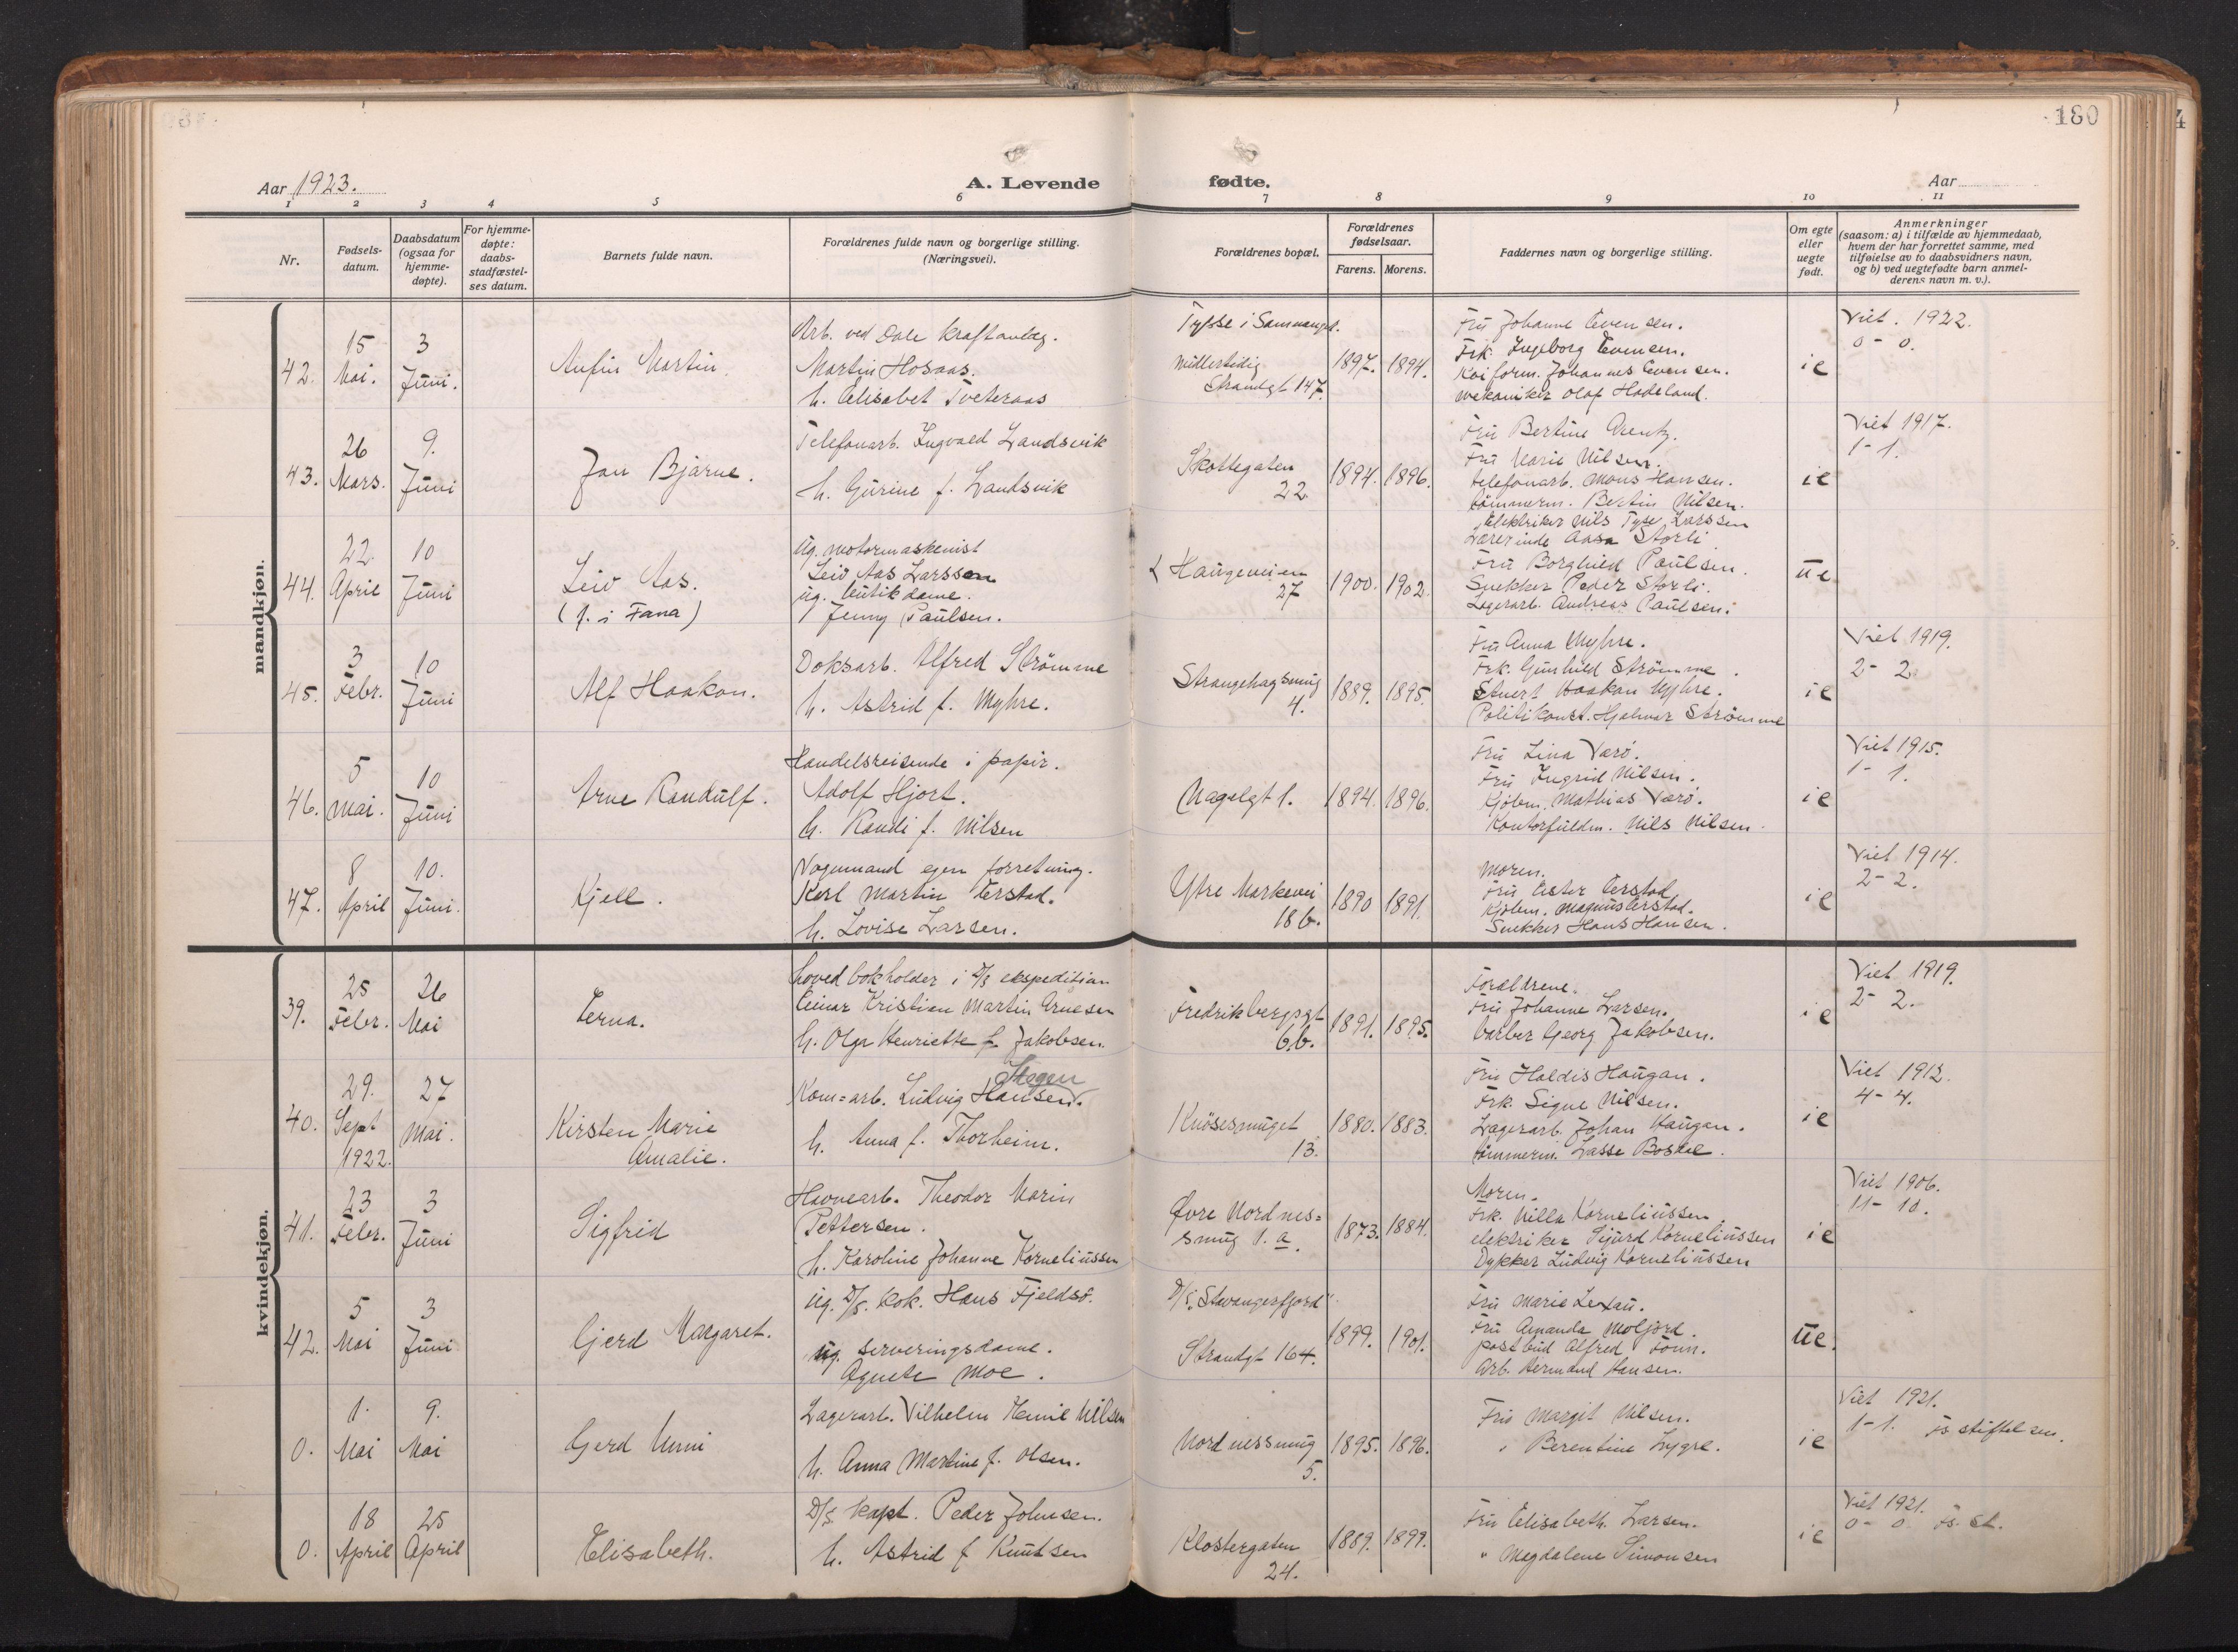 180
Aar 1923.
A. Levende
fødte.
Aar
1 2 3 4 5 6 7 8 9 10 11
Nr.
Fødsels-
datum.
Daabsdatum
(ogsaa for
hjemme-
døpte).
For hjemme-
døpte:
daabs-
stadfæstel-
ses datum.
Barnets fulde navn.
Forældrenes fulde navn og borgerlige stilling.
(Næringsvei).
Forældrenes bopæl.
Forældrenes
fødselsaar.
Farens. Morens.
Faddernes navn og borgerlige stilling.
Om egte
eller
uegte
født.
Anmerkninger
(saasom: a) i tilfælde av hjemmedaab,
hvem der har forrettet samme, med
tilføielse av to daabsvidners navn,
og b) ved uegtefødte barn anmel-
derens navn m. v.).
mandkjøn.
42.
15
Mai.
3
Juni.
Anfin Martin.
Arb. ved Dale kraftanlæg.
Martin Hosaas.
h. Elisabet Tveteraas
Tysse i Samnanger.
midlertidig
Strandgt 147.
1897. 1894.
Fru Johanne Evensen.
Frk. Ingeborg Evensen.
Kaiform. Johannes Evensen.
mekaniker Olaf Hadeland.
ie
Viet. 1922.
0 - 0.
43.
26
Mars.
9.
Juni
Jan Bjarne.
Telefonarb. Ingvald Landsvik
h. Gurine f. Landsvik
Skottegaten
22
1894. 1896.
Fru Bertine Arentz.
Fru Marie Nilsen.
telefonarb. Mons Hansen.
tömmerm. Bertin Nilsen.
ie
Viet 1917.
1 - 1.
44.
22
April
10
Juni
Leiv Aas.
(f. i Fana)
ug. motormaskenist
Leiv Aas Larssen
ug. butikdame.
Jenny Paulsen.
Haugeveien
27
1900. 1902.
Elektriker Nils Tyse Larssen
Lærerinde Aasa Storli
Fru Borghild Paulsen.
Snekker Peder Storli.
Lagerarb. Andreas Paulsen.
ue
45.
3
Febr.
10
Juni
Alf Haakon.
Doksarb. Alfred Strömme
h. Astrid f. Myhre.
Strangehagsmug
4.
1889. 1895.
Fru Anna Myhre.
Frk. Gunhild Strömme.
Stuert Haakon Myhre.
Politikonst. Hjalmar Strömme
ie
Viet 1919.
2 - 2
46.
5
mai.
10
Juni
Arne Randulf.
Handelsreisende i papir.
Adolf Hjort.
h. Randi f. Nilsen
Nagelgt 1.
1894. 1896.
Fru Lina Værö.
Fru Ingrid Nilsen.
Kjölem. Mathias Værö.
Kontorfuldm. Nils Nilsen.
ie
Viet 1915.
1 - 1.
47.
8
April
10.
Juni.
Kjell.
Vognmand egen forretning.
Karl Martin Erstad.
h. Lovise Larsen.
Ytre Markevei
18 b.
1890 1891.
Moren.
Fru Ester Erstad
Kjölem. Magnus Erstad.
Snekker Hans Hansen.
ie
Viet 1914.
2 - 2.
kvindekjøn.
39.
25
Febr.
26
Mai
Erna.
Hovedbokholder i D/s ekspedition
Einar Kristian Martin Arnesen
h. Olga Henriette f. Jakobsen.
Fredrikbergsgt
6 b.
1891. 1895.
Forældrene.
Fru Johanne Larsen.
Barber Georg Jakobsen.
ie
Viet 1919.
2 - 2.
40.
29.
Sept
1922.
27
Mai.
Kirsten Marie
Amalie.
Kom=arb. Ludvig Hansen.
h. Anna f. Thorheim.
Knösesmuget
13.
1880. 1883.
Fru Haldis Haugan.
Frk. Signe Nilsen.
Lagerarb. Johan Haugan.
tömmerm. Lasse
ie
Viet 1912.
4 - 4.
41.
23
Febr.
3
Juni
Sigfrid
Havnearb. Theodor Marin
Pettersen.
h. Karoline Johanne Korneliussen
Øvre Nordnes=
smug 1. a.
1873. 1884.
Moren.
Frk. Milla Korneliussen
elektriker Sigurd Korneliussen
Dykker Ludvig Korneliussen
ie
Viet 1906.
11 - 10.
42.
5
Mai
3
Juni
Gjerd Margaret.
Ug. D/s. kok. Hans Fjeldsö.
ug. serveringsdame.
Agnete Moe.
D/s "Stavangerfjord"
Strandgt 164.
1899. 1901.
Fru Marie Lexau.
Fru Amanda Moljord.
postbud Alfred Tönn.
Arb. Hermand Hansen.
ue.
0.
1.
Mai
9.
Mai
Gjerd Unni
Lagerarb. Vilhelm Hemil Nilsen
h. Anna Martine f. Olsen.
Nordnessmug
5.
1895. 1896.
Fru Margit Nilsen.
" Berentine Lygre.
ie
Viet 1921.
1 - 1. Fs stiftelsen.
0.
18
April
25
April
Elisabeth.
D/s kapt. Peder Johnsen.
h. Astrid f Knutsen
Klostergaten
24.
1889. 1899.
Fru Elisabeth Larsen.
" Magdalene Simonsen
ie
Viet 1921.
0 - 0 Fs. st.